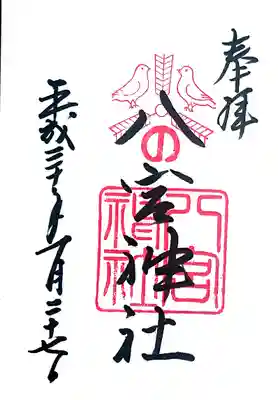 奉拝
八の宮神社
八宮
神社
平成三十年一月二十七日